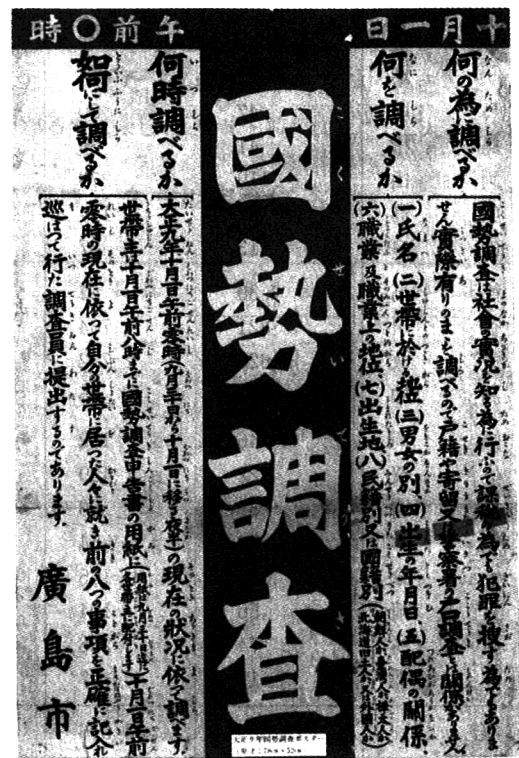 十月一日
午前〇時
何の為に調べるか
何を調べるか
國勢調査は社會の實況を知る為に行ふので課税の為でも犯罪を搜す為でもありま
せん實際有りのまゝを調べるので戸籍や寄留又は警察署の戸口調査とは關係ありません
(一)氏名(二)世帯に於ける地位(三)男女の別(四)出生の年月日(五)配偶の關係、
(六)職業及職業上の地位(七)出生地(八)民籍別又は國籍別
國勢調査
何時調べるか
如何にして調べるか
大正九年十月一日午前零時(九月三十日から十月一日に移る夜半)の現在の狀況に依つて調べます
世帯主は十月一日午前八時までに國勢調査申告書の用紙に 十月一日午前
零時の現在に依つて自分の世帯に居つた人々に就き前の八つの事項を正確に記入れ
巡はつて行た調査員に提出するのであります
廣島市
大正9年国勢調査ポスター